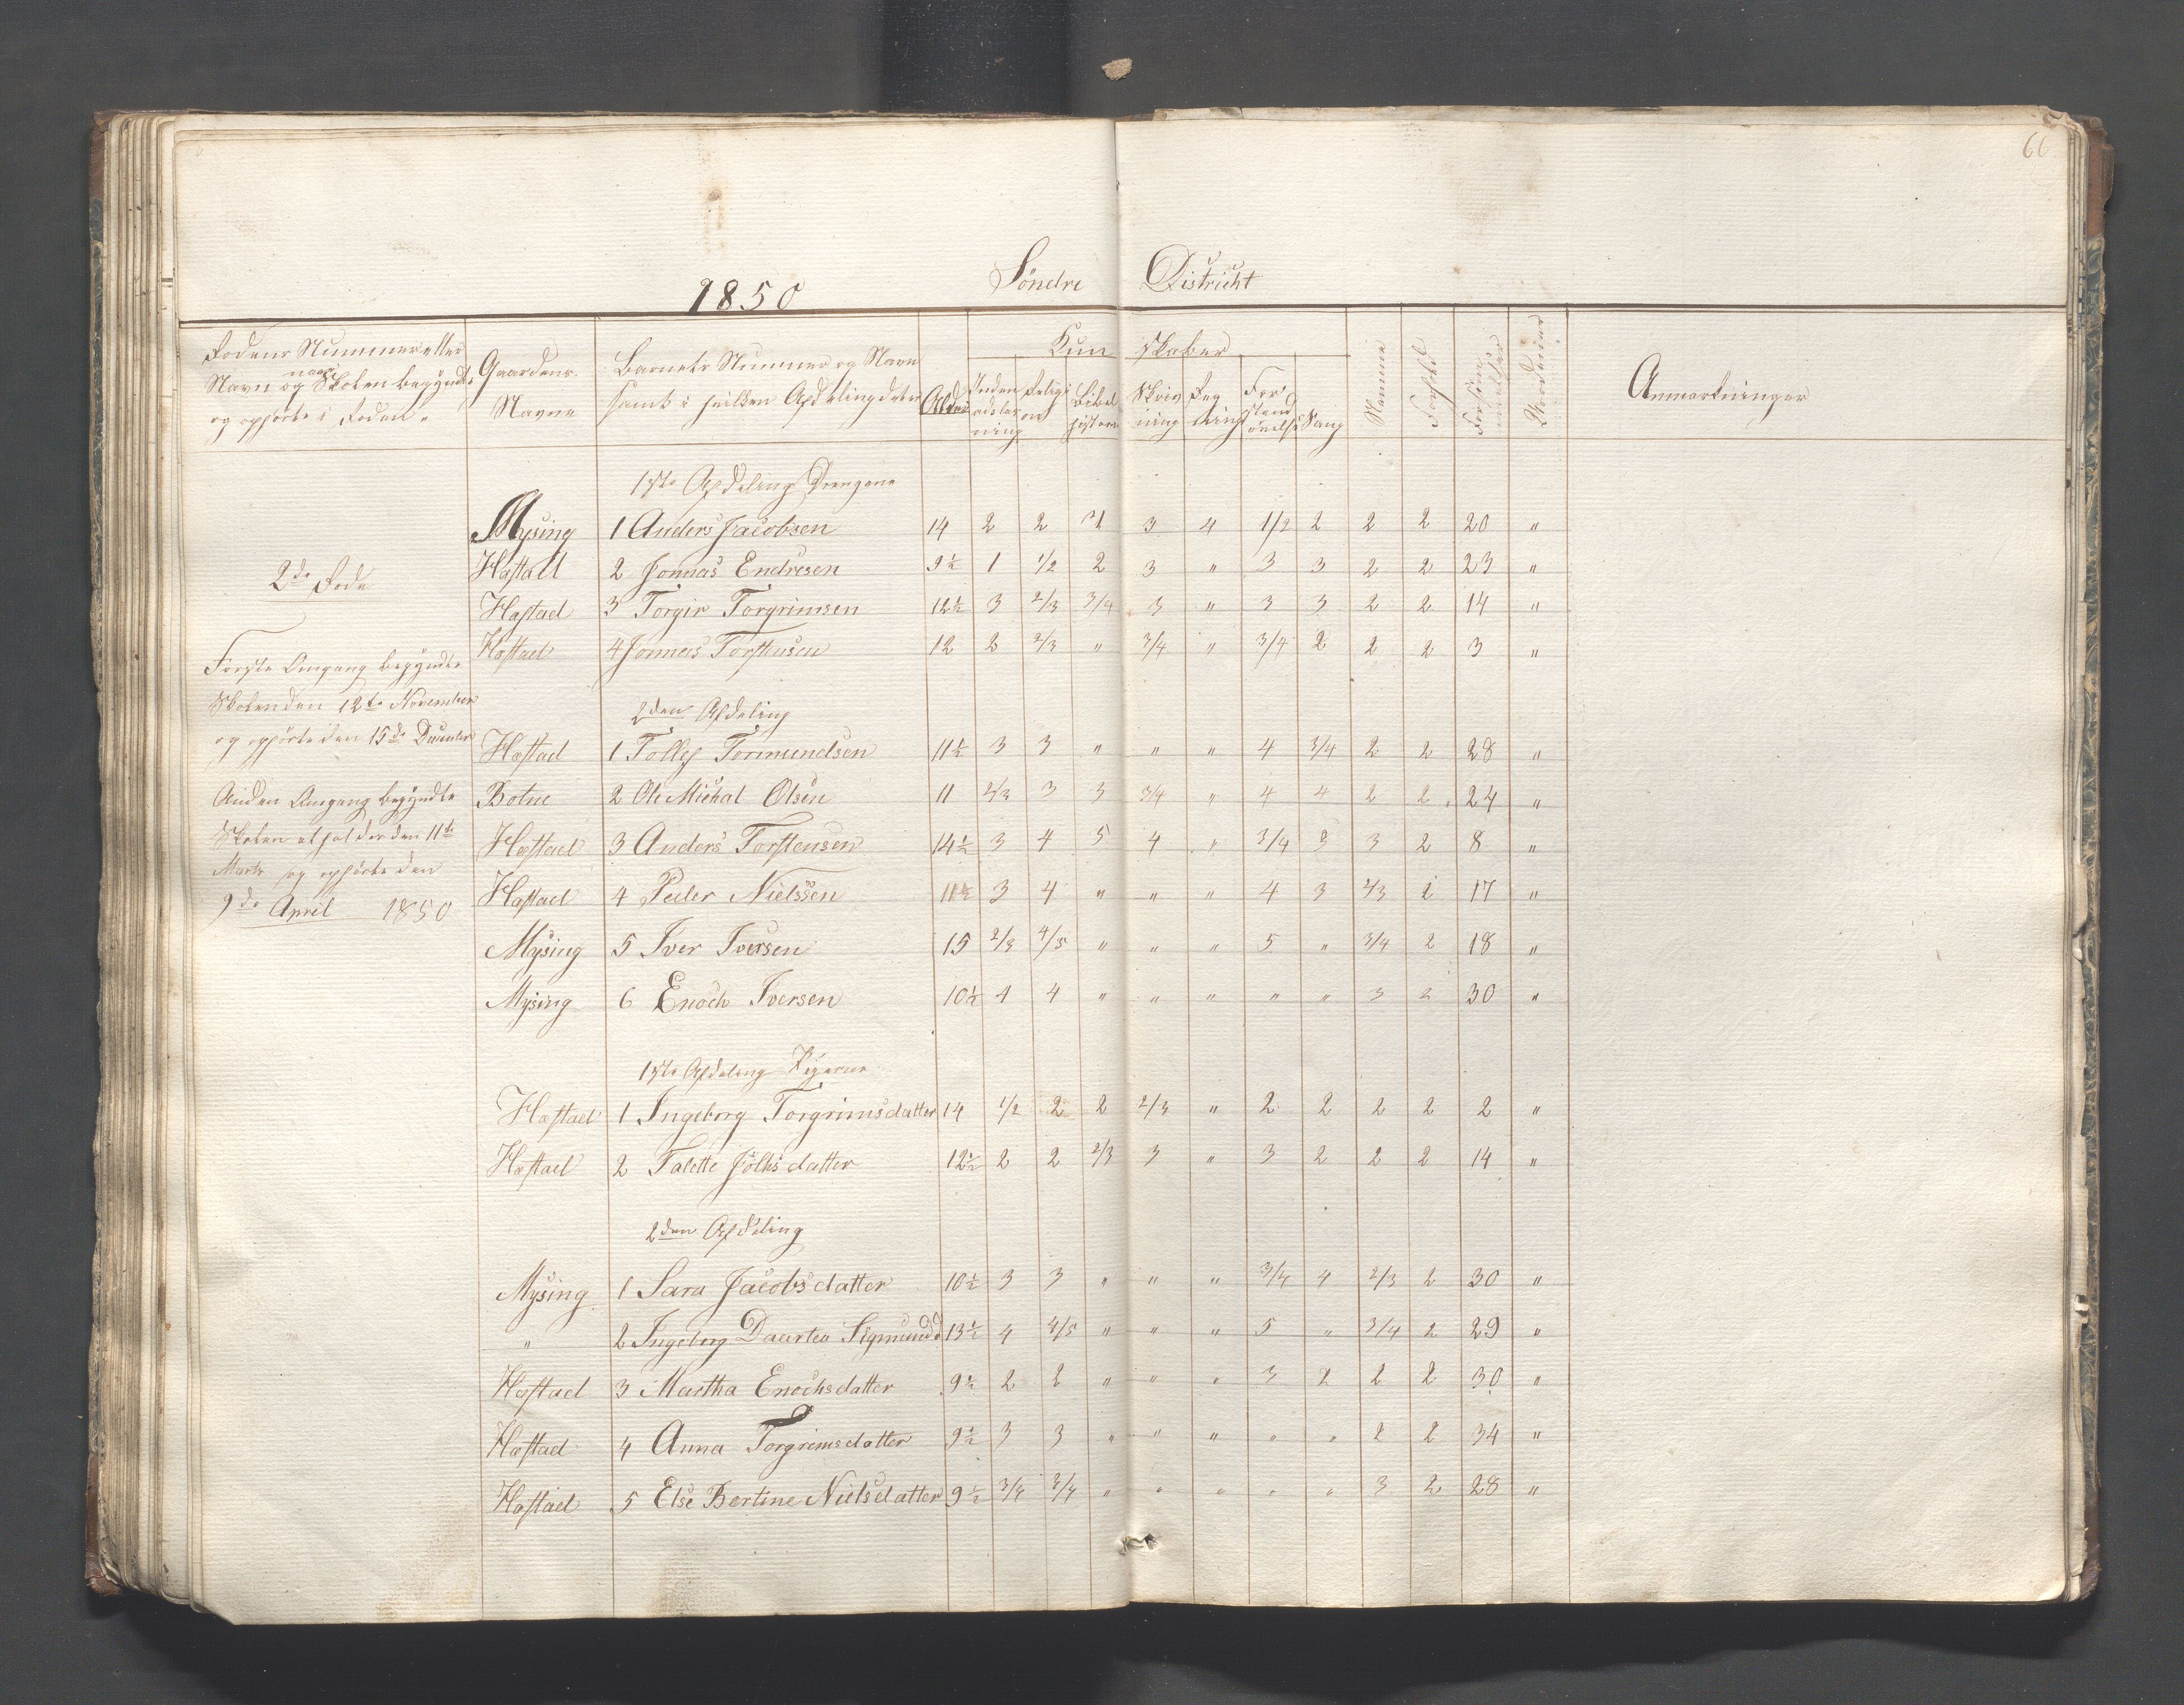 66
1850 Söndre District
Rodens Nummer eller
Navn og naar Skolen begyndte
og ophörte i Roden.
Gaardens
Navne
Barnets Nummer og Navn
samt i hvilken Afdeling det er
Alder
Kundskaber
Inden
adsläs
ning
Religi
on
Bibel
historie
Skriv
ning
Reg
ning
For
stand
övelse
Sang
Nemme
Forhold
Forsöm
melser
Anmærkninger
1ste Afdeling Drengene
Mysing 1 Anders Jacobsen 14 2 2 3/4 3 4 1/2 2 2 2 20 "
2de Rode
Hastad 2 Jonnas Endresen 9½ 1 1/2 2 3 " 3 3 2 2 23 "
Hastad 3 Torgir Torgrimsen 12½ 3 2/3 3/4 3 " 3 3 2 2 14 "
Hastad 4 Jonnas Torstensen 12 2 2/3 " 3/4 " 3/4 2 2 2 3 "
Förste Omgang begyndte
Skolen den 12te November
og ophörte den 15de December
2den Afdeling
Hastad 1 Tollef Tormundsen 11½ 3 3 " " " 4 3/4 2 2 28 "
Anden Omgang begyndte
Skolen at holdes den 11te
Marts og ophörte den
9de April 1850
Botne 2 Ole Michal Olsen 11 2/3 3 3 3/4 " 4 4 2 2 24 "
Hastad 3 Anders Torstensen 14½ 3 4 5 4 " 3/4 3 3 2 8 "
Hastad 4 Peder Nielssen 11½ 3 4 " " " 4 3 2/3 2 17 "
Mysing 5 Iver Iversen 15 2/3 4/5 " " " 5 " 3/4 2 18 "
Mysing 6 Enoch Iversen 10½ 4 4 " " " " " 3 2 30 "
1ste Afdeling Pigerne
Hastad 1 Ingeborg Torgrimsdatter 14 1/2 2 2 2/3 " 2 2 2 2 2 "
Hastad 2 Talette Jölhsdatter 12½ 2 2 2/3 3 " 3 2 2 2 14 "
2den Afdeling
Mysing 1 Sara Jacobsdatter 10½ 3 3 " " " 3/4 4 2/3 2 30 "
" 2 Ingeborg Daartea Sigmundd 13½ 4 4/5 " " " 5 " 3/4 2 29 "
Hastad 3 Martha Enochsdatter 9½ 2 2 " " " 3 2 2 2 30 "
Hastad 4 Anna Torgrimsdatter 9½ 3 3 " " " " " 2 2 34 "
Hastad 5 Else Bertine Nielsdatter 9½ 3/4 3/4 " " " " " 3 2 28 "